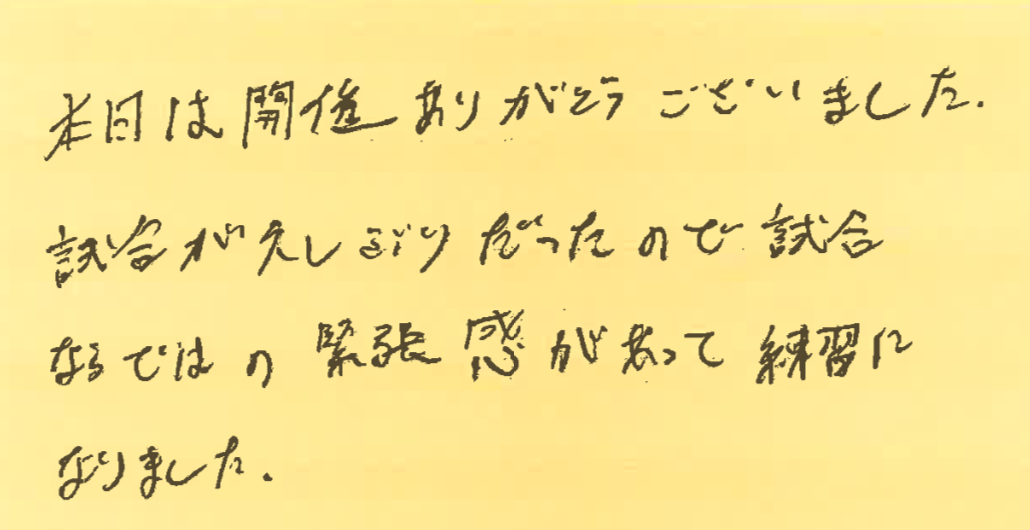 本日は開催ありがとうございました.
試合が久しぶりだったので試合
ならではの緊張感があって練習に
なりました.